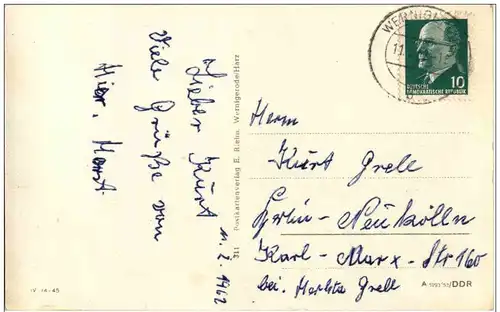 Lieber Kurt
11. 2. 1962
Viele Grüße von
311 Postkartenverlag E. Riehn, Wernigerode/Harz
WERNIG
10
DEUTSCHE
DEMOKRATISCHE REPUBLIK
Herrn
Kurt Grell
Berlin - Neukölln
Karl - Marx - Str 160
bei Grell
IV-14-45
DDR